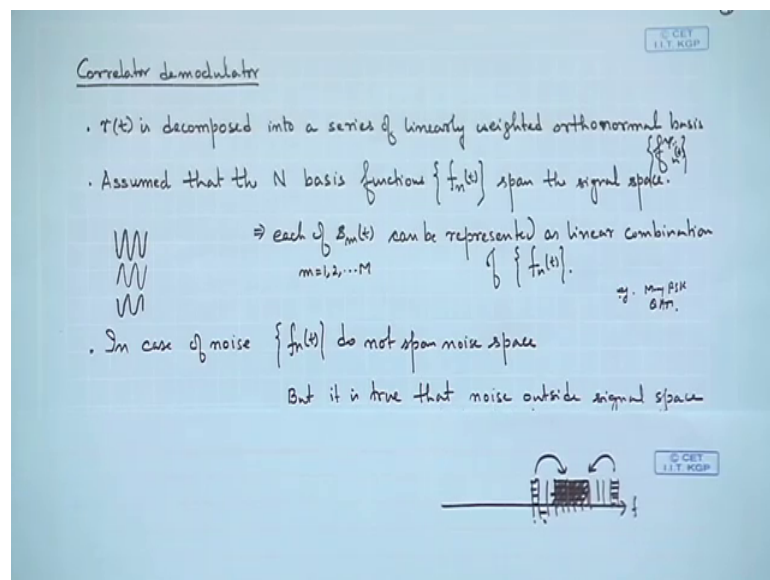 © CET
I.I.T. KGP
Correlator demodulator
. r(t) is decomposed into a series of linearly weighted orthonormal basis
{fn(t)}
. Assumed that the N basis functions {fn(t)} span the signal space.
⇒ each of Sm(t) can be represented as linear combination
m=1,2,...M
of {fn(t)}.
eg. Mary PSK
QAM.
. In case of noise {fn(t)} do not span noise space
But it is true that noise outside signal space
© CET
I.I.T. KGP
f